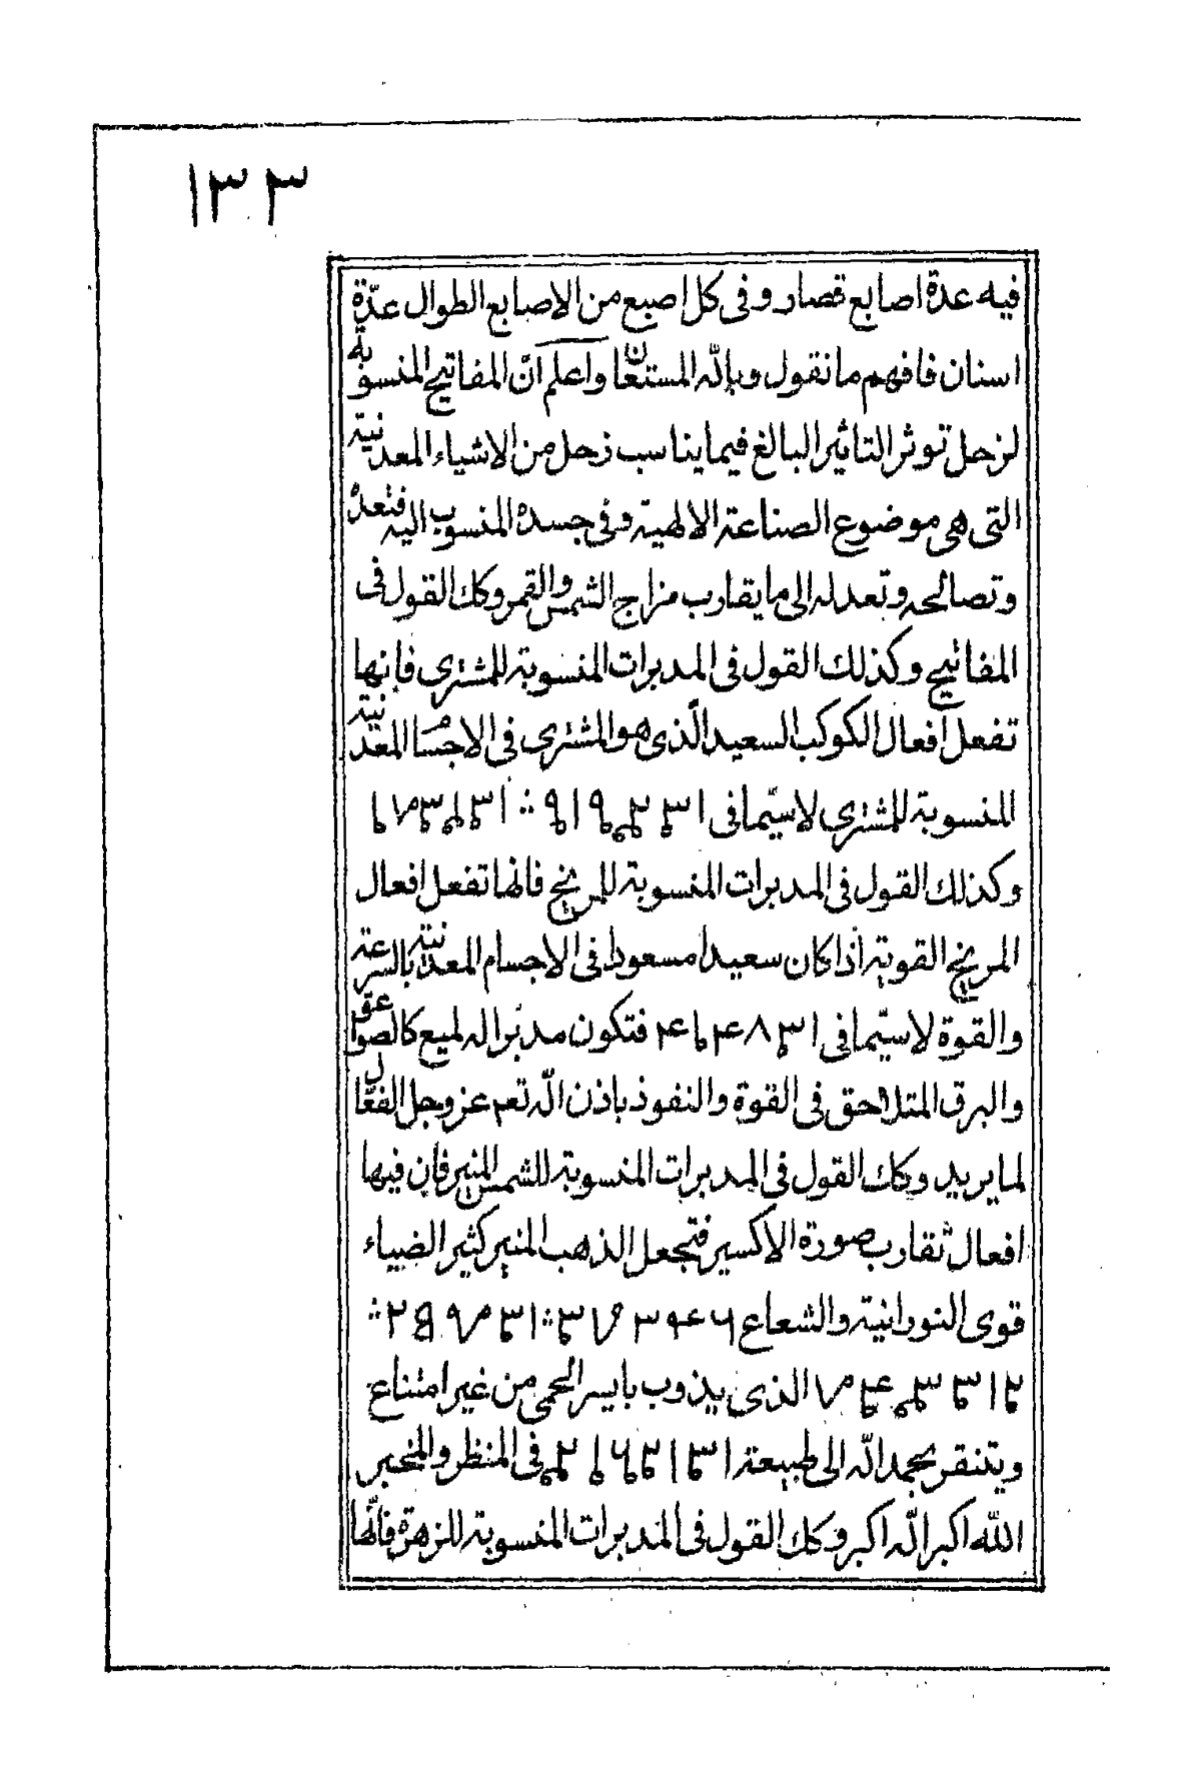 ١٣٣
فيه عدة اصابع قصار وفى كل اصبع من الاصابع الطوال عدّة
اسنان فافهم ما نقول وبالله المستعان واعلم انّ المفاتيح المنسوبة
لزحل توثر التاثير البالغ فيما يناسب زحل من الاشياء المعدنية
التى هى موضوع الصناعة الالهية وفى جسده المنسوب اليه فتعده
وتصالحه وتعدله الى ما يقارب مزاج الشمس والقمر وكك القول فى
المفاتيح وكذلك القول فى المدبرات المنسوبة للمشترى فانها
تفعل افعال الكوكب السعيد الّذى هو المشترى فى الاجسام المعدنية
المنسوبة للمشترى لاسيّما فى
وكذلك القول فى المدبرات المنسوبة للمريخ فانها تفعل افعال
المريخ القوية اذا كان سعيدا مسعودا فى الاجسام المعدنية بالسرعة
والقوة لاسيّما فى فتكون مدبّرا له لميع كالصواعق
والبرق المتلاحق فى القوة والنفوذ باذن الله تعم عز وجل الفعّال
لما يريد وكك القول فى المدبرات المنسوبة للشمس المنير فان فيها
افعال تقارب صورة الاكسير فتجعل الذهب المنير كثير الضياء
قوى النورانية والشعاع
الذى يذوب بايسر الحمى من غير امتناع
بحمد الله الى طبيعة فى المنظر والمخبر
الله اكبر الله اكبر وكك القول فى المدبرات المنسوبة للزهرة فانّها